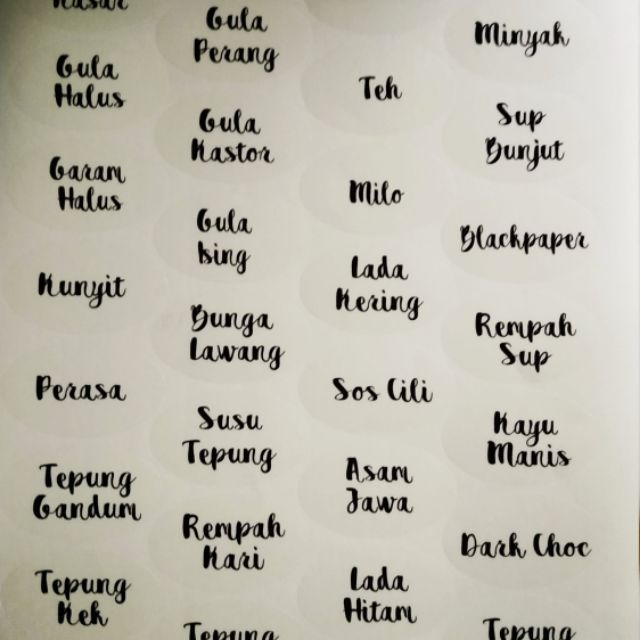 Kasar
Gula
Halus
Garam
Halus
Kunyit
Perasa
Tepung
Gandum
Tepung
Kek
Gula
Perang
Gula
Kastor
Gula
Ising
Bunga
Lawang
Susu
Tepung
Rempah
Kari
Tepung
Teh
Milo
Lada
Kering
Sos Cili
Asam
Jawa
Lada
Hitam
Minyak
Sup
Bunjut
Blackpaper
Rempah
Sup
Kayu
Manis
Dark Choc
Tepung